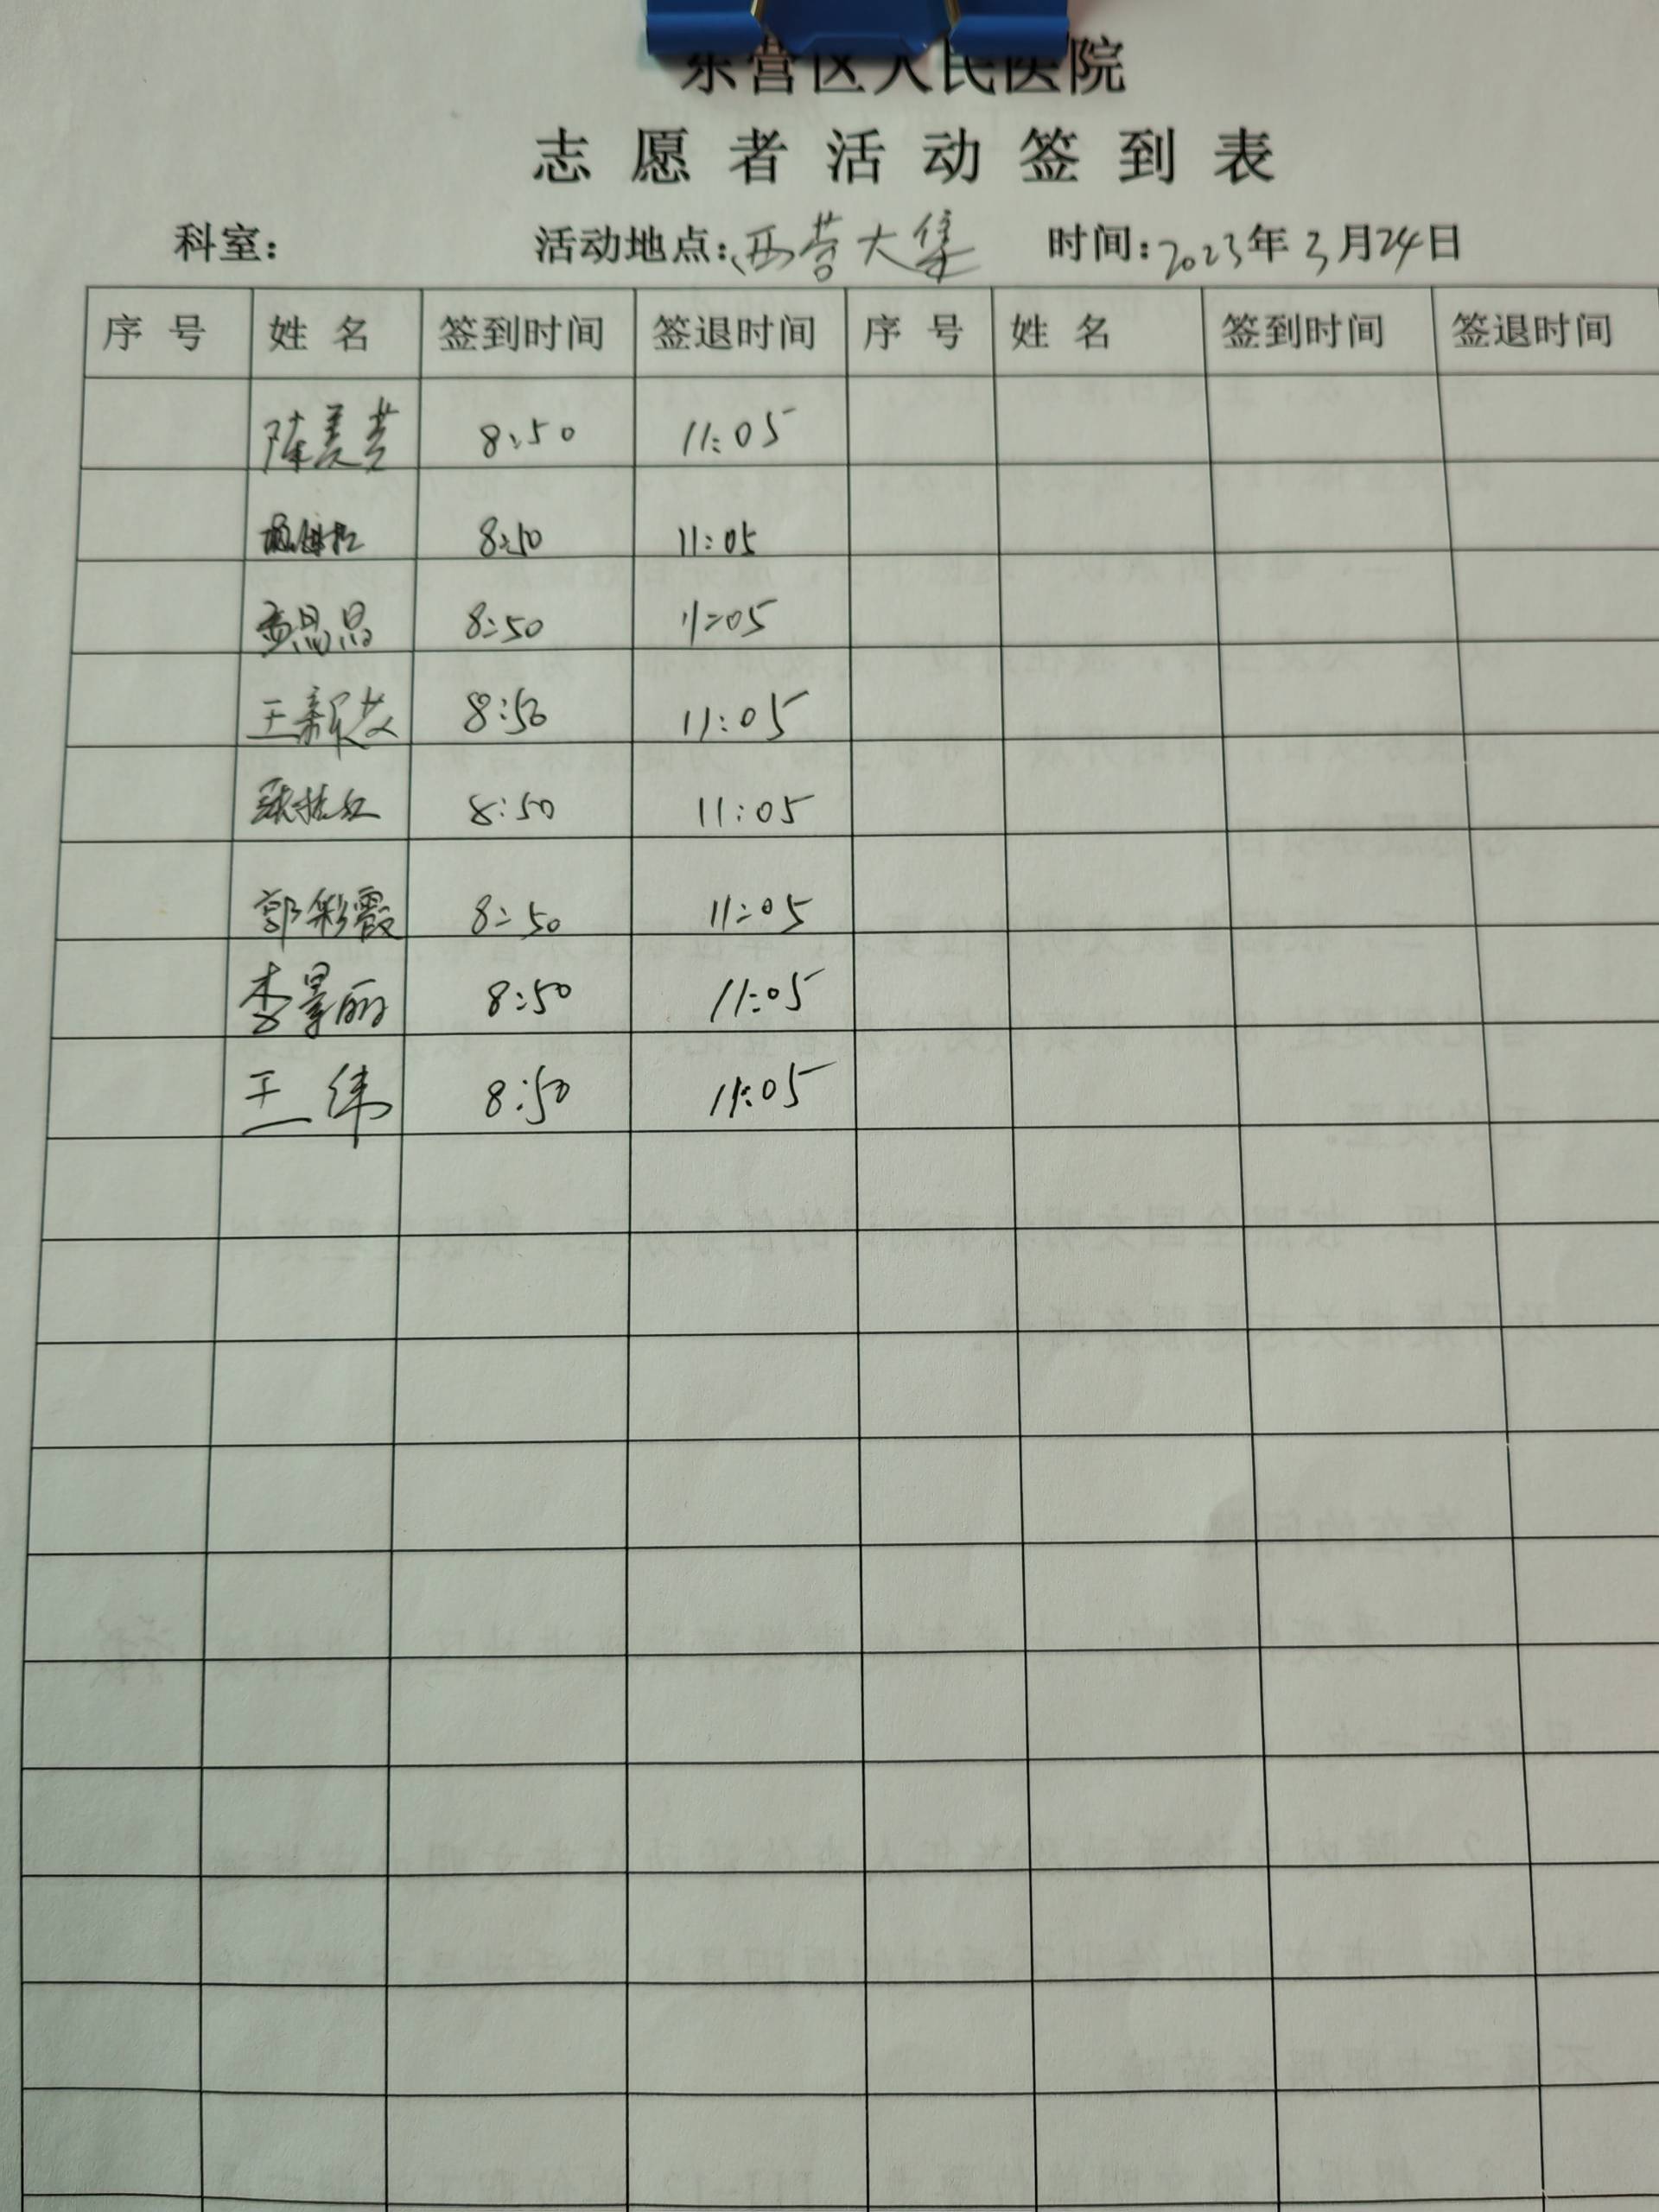 东营区人民医院
志愿者活动签到表
科室： 活动地点：西营大集 时间：2023年3月24日
序号 姓名 签到时间 签退时间 序号 姓名 签到时间 签退时间
陈美芸 8:50 11:05
8:50 11:05
孟晶晶 8:50 11:05
王新芝 8:50 11:05
8:50 11:05
郭彩霞 8:50 11:05
李景丽 8:50 11:05
王伟 8:50 11:05